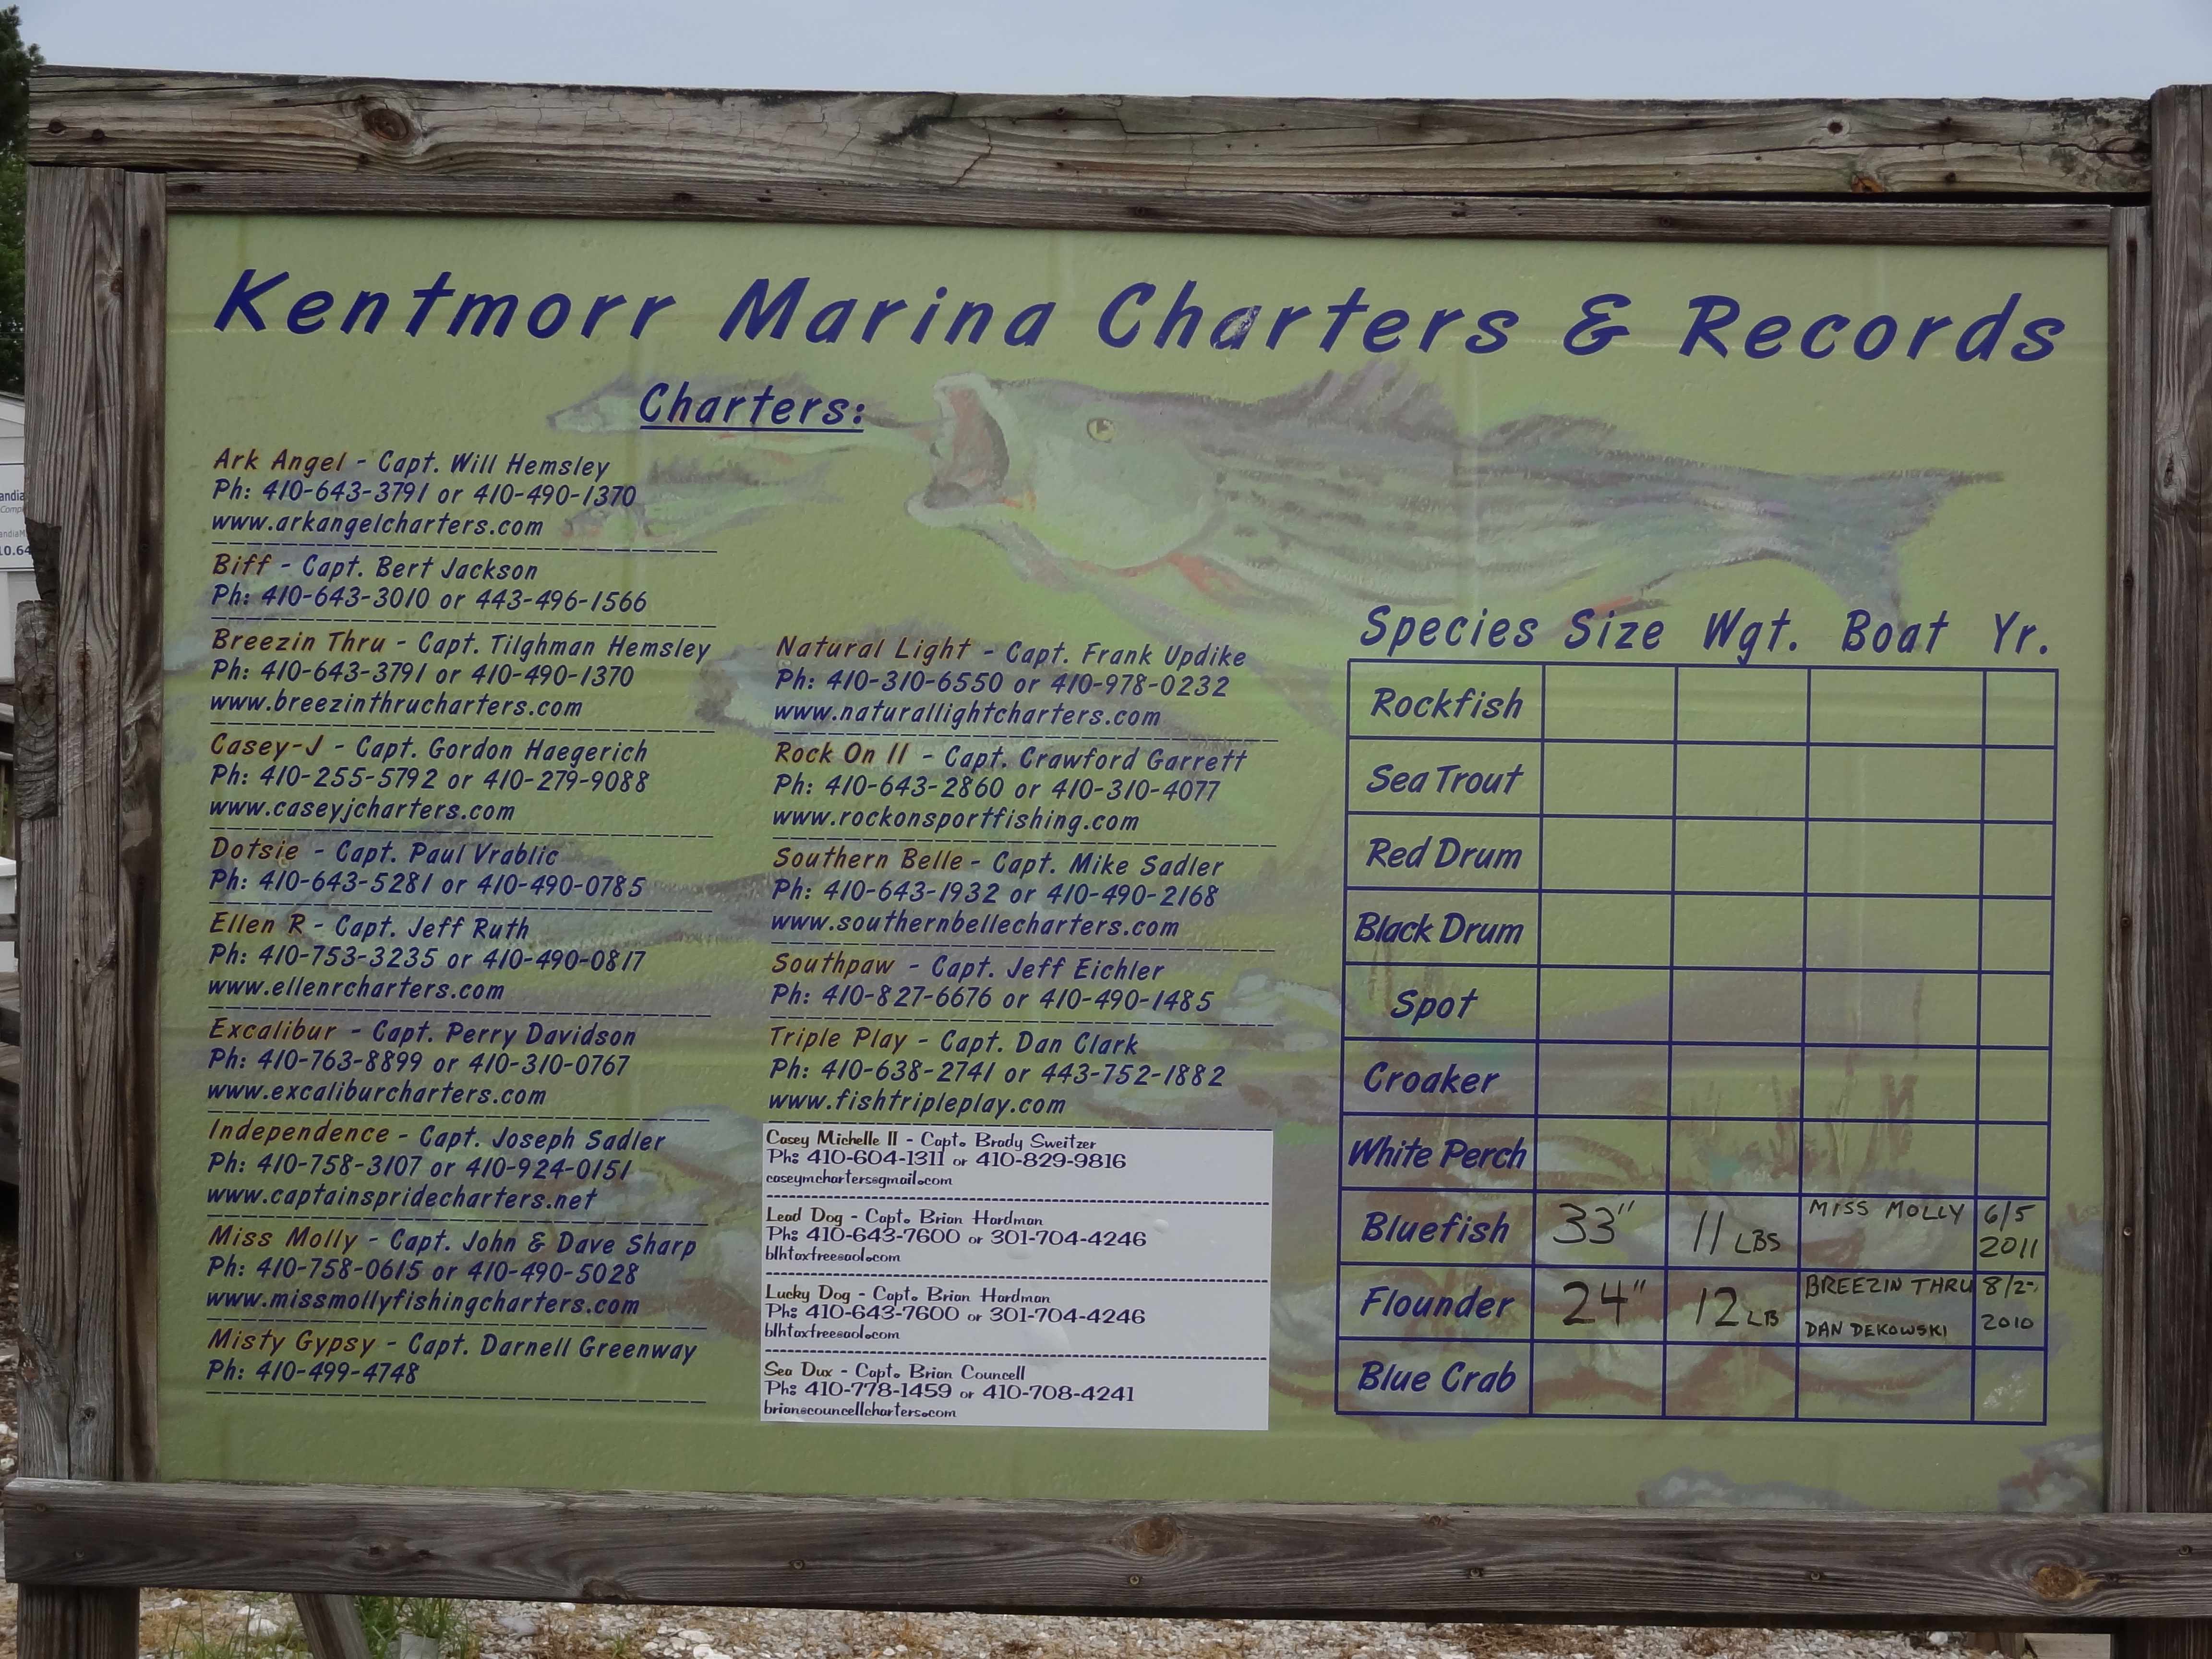 Kentmorr Marina Charters & Records
Charters:
Ark Angel - Capt. Will Hemsley
Ph: 410-643-3791 or 410-490-1370
www.arkangelcharters.com
Biff - Capt. Bert Jackson
Ph: 410-643-3010 or 443-496-1566
Breezin Thru - Capt. Tilghman Hemsley
Ph: 410-643-3791 or 410-490-1370
www.breezinthrucharters.com
Casey-J - Capt. Gordon Haegerich
Ph: 410-255-5792 or 410-279-9088
www.caseyjcharters.com
Dotsie - Capt. Paul Vrablic
Ph: 410-643-5281 or 410-490-0785
Ellen R - Capt. Jeff Ruth
Ph: 410-753-3235 or 410-490-0817
www.ellenrcharters.com
Excalibur - Capt. Perry Davidson
Ph: 410-763-8899 or 410-310-0767
www.excaliburcharters.com
Independence - Capt. Joseph Sadler
Ph: 410-758-3107 or 410-924-0151
www.captainspridecharters.net
Miss Molly - Capt. John & Dave Sharp
Ph: 410-758-0615 or 410-490-5028
www.missmollyfishingcharters.com
Misty Gypsy - Capt. Darnell Greenway
Ph: 410-499-4748
Natural Light - Capt. Frank Updike
Ph: 410-310-6550 or 410-978-0232
www.naturallightcharters.com
Rock On II - Capt. Crawford Garrett
Ph: 410-643-2860 or 410-310-4077
www.rockonsportfishing.com
Southern Belle - Capt. Mike Sadler
Ph: 410-643-1932 or 410-490-2168
www.southernbellecharters.com
Southpaw - Capt. Jeff Eichler
Ph: 410-827-6676 or 410-490-1485
Triple Play - Capt. Dan Clark
Ph: 410-638-2741 or 443-752-1882
www.fishtripleplay.com
Casey Michelle II - Capt. Brady Sweitzer
Ph: 410-604-1311 or 410-829-9816
caseymcharters@gmail.com
Lead Dog - Capt. Brian Hardman
Ph: 410-643-7600 or 301-704-4246
blhtaxfree@aol.com
Lucky Dog - Capt. Brian Hardman
Ph: 410-643-7600 or 301-704-4246
blhtaxfree@aol.com
Sea Dux - Capt. Brian Councell
Ph: 410-778-1459 or 410-708-4241
brian@councellcharters.com
Species Size Wgt. Boat Yr.
Rockfish
Sea Trout
Red Drum
Black Drum
Spot
Croaker
White Perch
Bluefish 33" 11 LBS MISS MOLLY 6/5 2011
Flounder 24" 12 LB BREEZIN THRU DAN DEKOWSKI 2010
Blue Crab